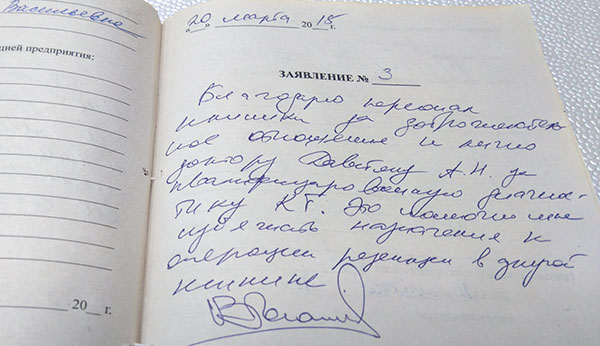 Васильевна
цией предприятия:
20__ г.
"20" марта 2018г.
ЗАЯВЛЕНИЕ № 3
Благодарю персонал
клиники за доброжелатель-
ное отношение и лично
доктору Давтяну А.Н. за
квалифицированную диагнос-
тику КТ. Это помогло мне
избежать назначения к
операции резекции в другой
клинике